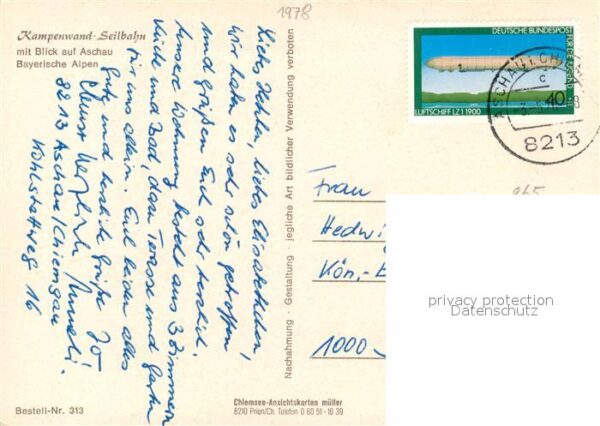 1978
Kampenwand-Seilbahn
mit Blick auf Aschau
Bayerische Alpen
Liebes Elisabethchen,
wir haben es sehr schön getroffen
und grüßen Euch sehr herzlich.
Unsere Wohnung besteht aus 3 Zimmern
Küche und Bad, dazu Terasse und Garten
für uns allein. Euch beiden alles
Gute und herzliche Grüße
8213 Aschau/Chiemgau
16
Nachahmung · Gestaltung · jegliche Art bildlicher Verwendung verboten
DEUTSCHE BUNDESPOST
FÜR DIE JUGEND 1978
40
LUFTSCHIFF LZ 1 1900
ASCHAU I. CH
c
8213
965
Frau
Hedwi
Kön.-E
1000
privacy protection
Datenschutz
Bestell-Nr. 313
Chiemsee-Ansichtskarten müller
8210 Prien/Ch. Telefon 0 80 51 - 16 39